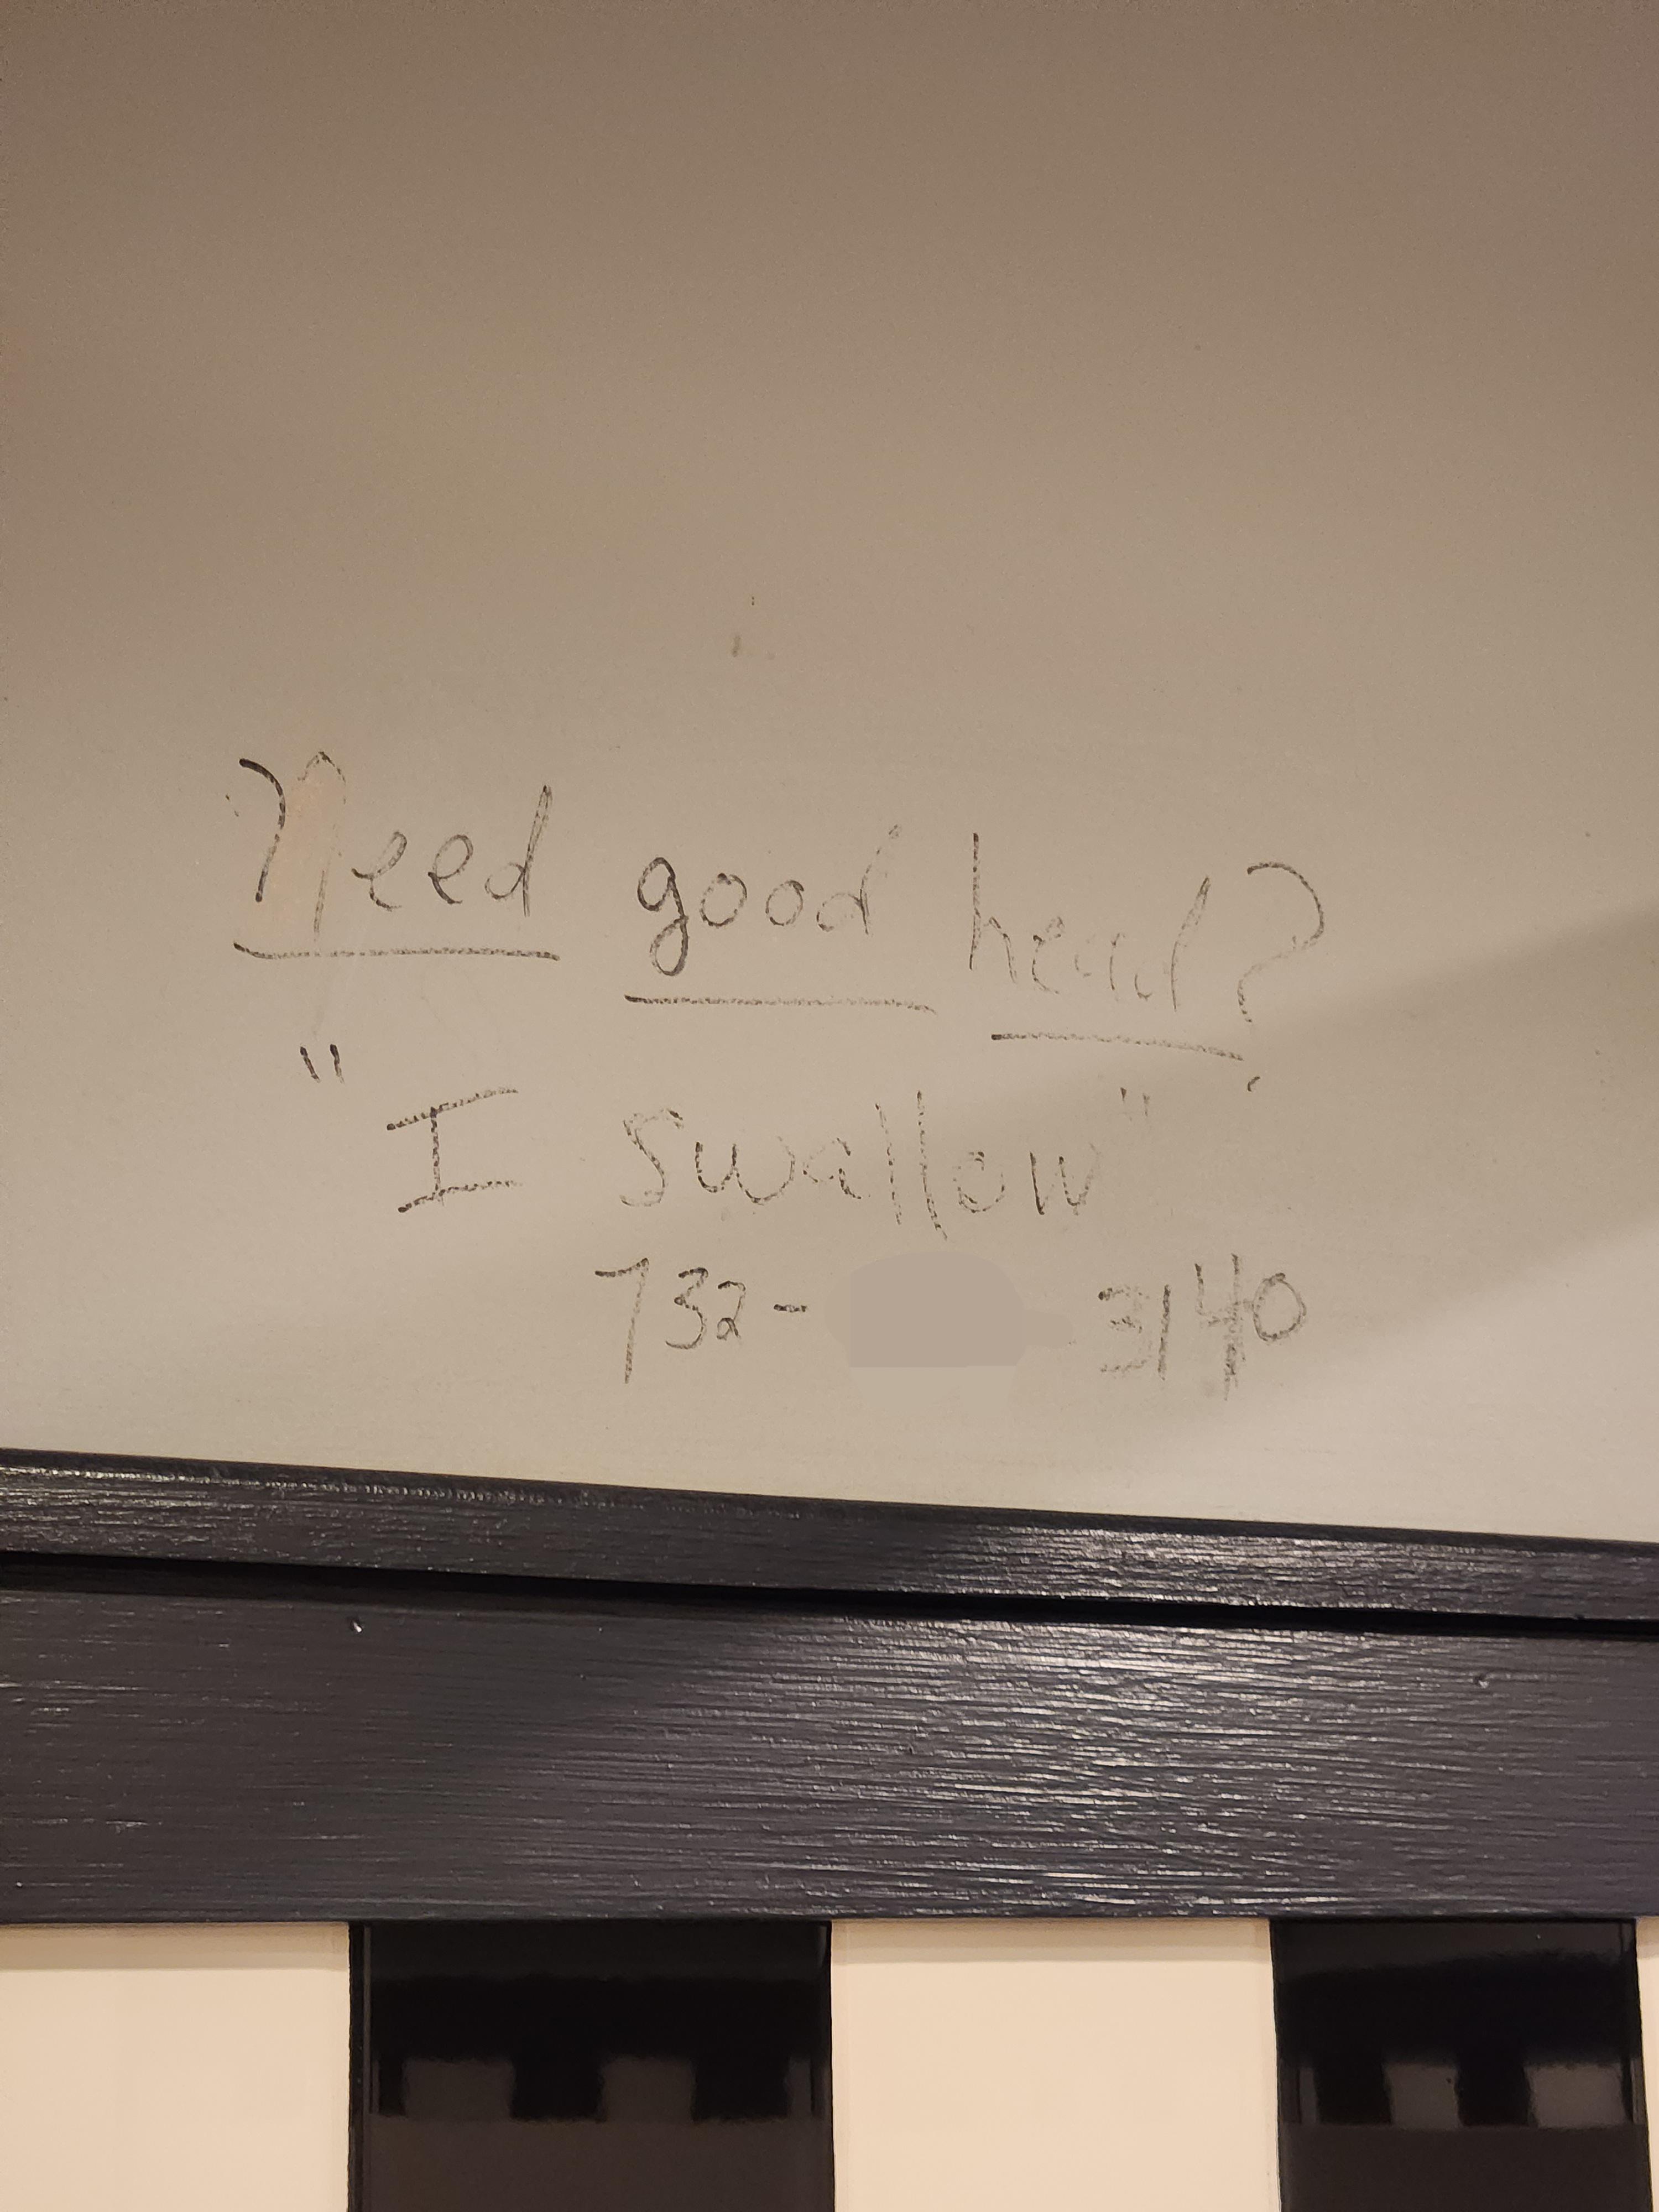 Need good head?
"I swallow"
732- 3140